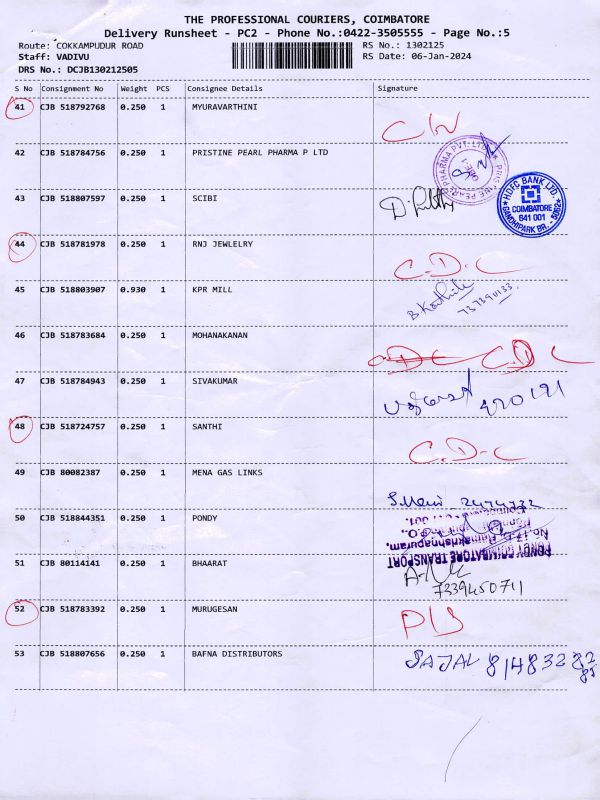 THE PROFESSIONAL COURIERS, COIMBATORE
Delivery Runsheet - PC2 - Phone No.:0422-3505555 - Page No.:5
Route: COKKAMPUDUR ROAD RS No.: 1302125
Staff: VADIVU RS Date: 06-Jan-2024
DRS No.: DCJB130212505
S No Consignment No Weight PCS Consignee Details Signature
41 CJB 518792768 0.250 1 MYURAVARTHINI
42 CJB 518784756 0.250 1 PRISTINE PEARL PHARMA P LTD
PRISTINE PEARL PHARMA PVT. LTD.
43 CJB 518807597 0.250 1 SCIBI
HDFC BANK LTD.
COIMBATORE
641 001
GANDHIPARK BR. - 5062
44 CJB 518781978 0.250 1 RNJ JEWLELRY C.D.C
45 CJB 518803907 0.930 1 KPR MILL
46 CJB 518783684 0.250 1 MOHANAKANAN CDC C.D.C
47 CJB 518784943 0.250 1 SIVAKUMAR
48 CJB 518724757 0.250 1 SANTHI C.D-C
49 CJB 80082387 0.250 1 MENA GAS LINKS
50 CJB 518844351 0.250 1 PONDY
PONDY COIMBATORE TRANSPORT
51 CJB 80114141 0.250 1 BHAARAT
7339450711
52 CJB 518783392 0.250 1 MURUGESAN
53 CJB 518807656 0.250 1 BAFNA DISTRIBUTORS SAJAL